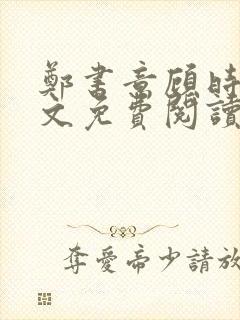 鄭書意顧時
文免費閱讀
奪愛帝少請放